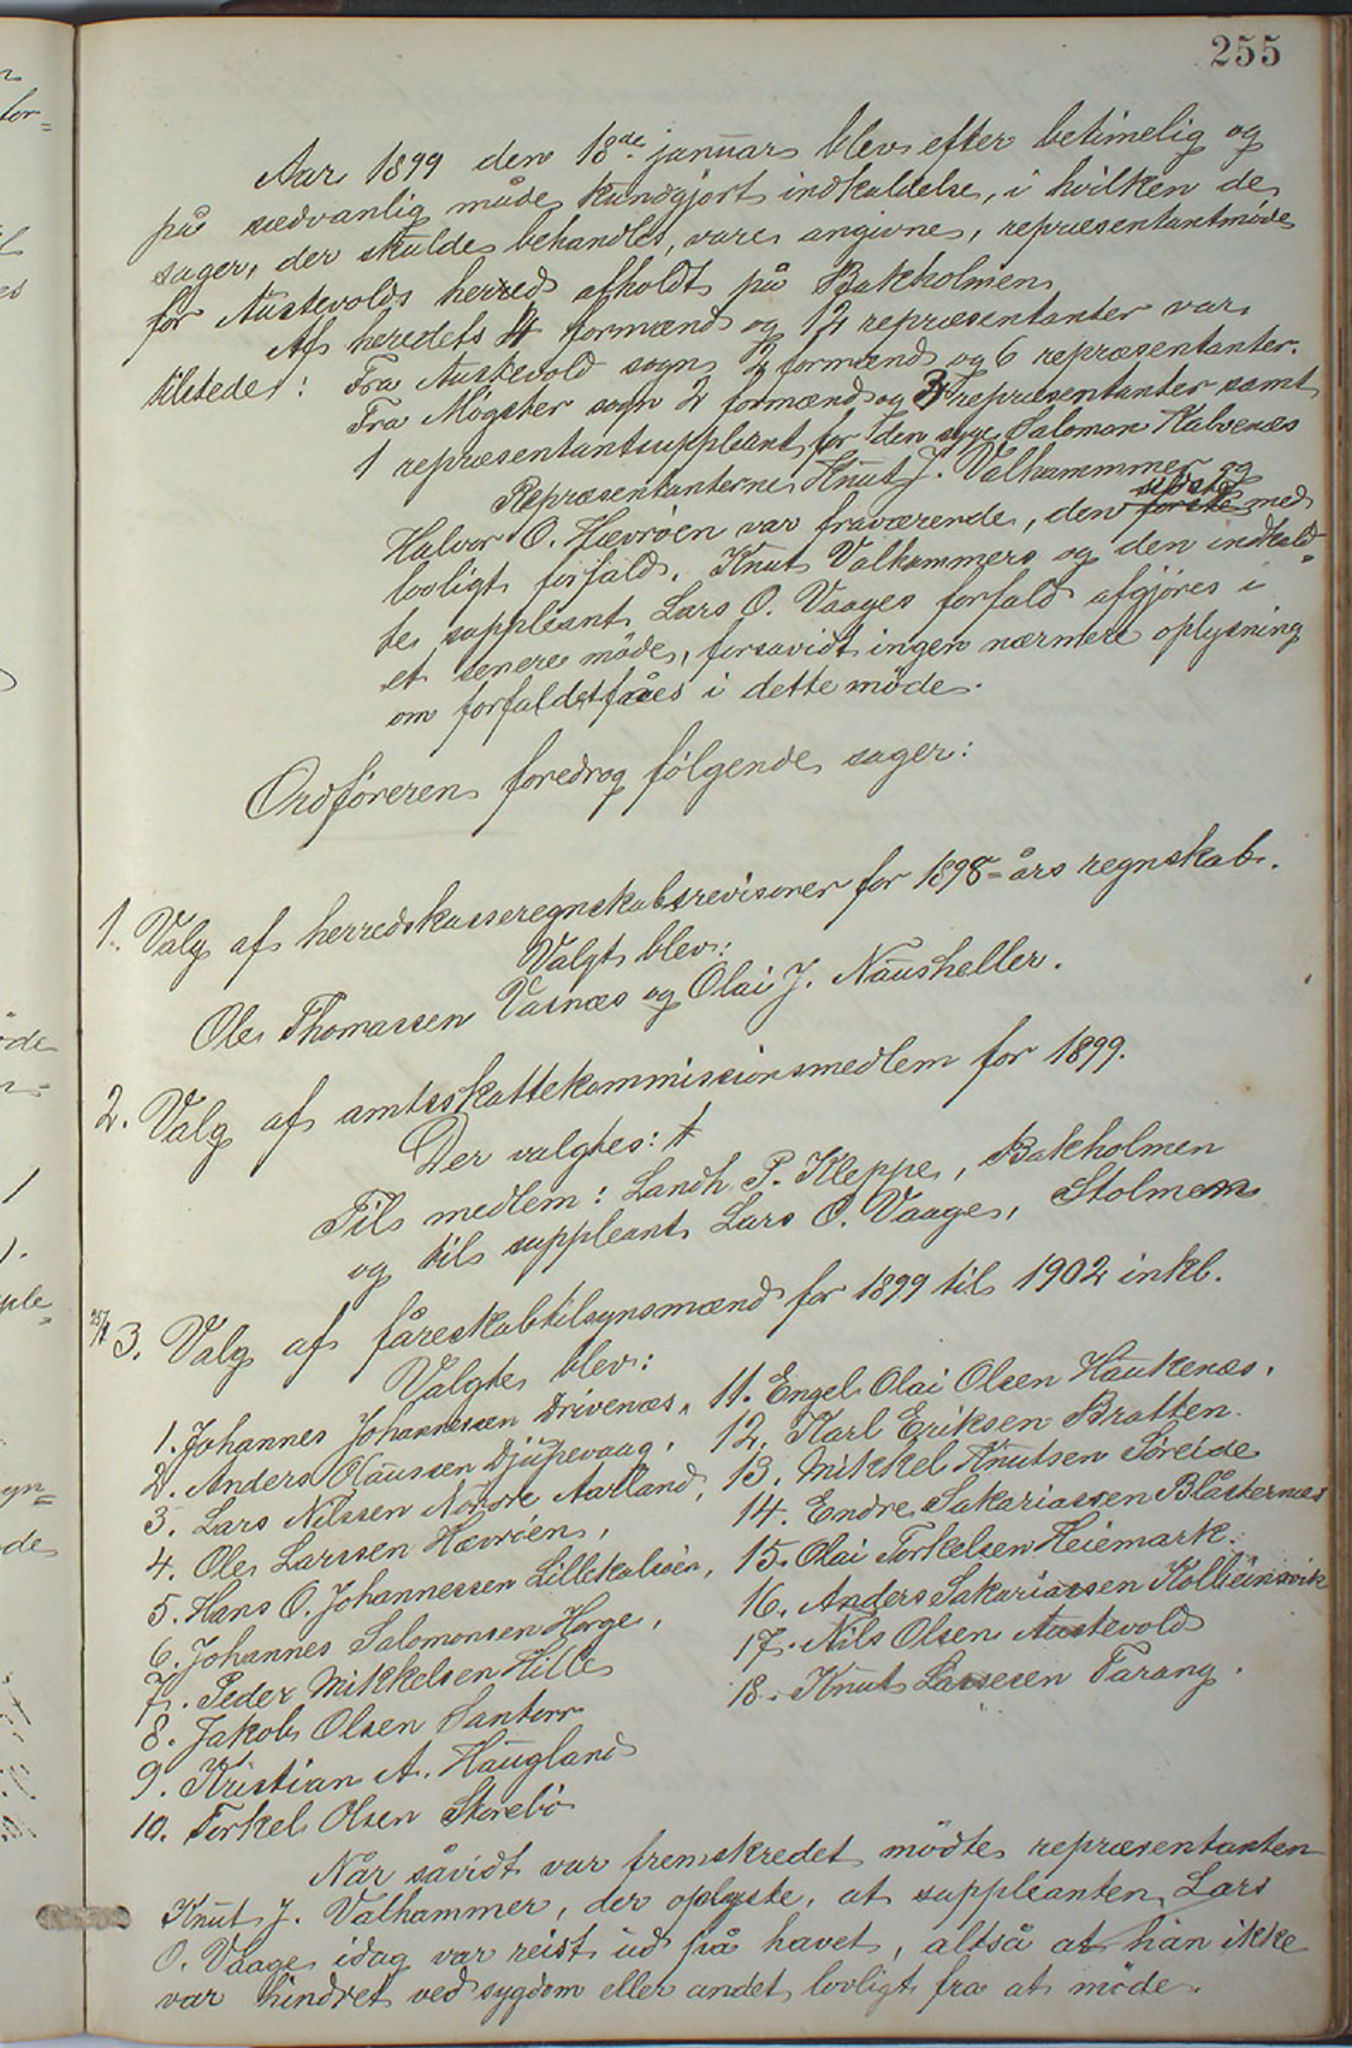 255
Aar 1899 den 18de januar blev efter betimelig og
på sædvanlig måde kundgjort indkaldelse, i hvilken de
sager, der skulde behandles, vare angivne, repræsentantmöde
for Austevolds herred afholdt på Bakholmen
Af heredets 4 formænd og 12 repræsentanter var
tilstede: Fra Austevold sogn 2 formænd og 6 repræsentanter.
Fra Møgster sogn 2 formænd og 3 repræsentanter samt
1 repræsentantsuppleant for den syge Salomon Kalvenæs
Repræsentanterne Knut J. Valhammmer og
Halvor O. Hævröen var fraværende, den første sidste med
lovligt forfald. Knut Valhammers og den indkald-
te suppleant Lars O. Vaages forfald afgjöres i
et senere möde, forsavidt ingen nærmere oplysning
om forfaldet fåes i dette möde.
Ordföreren foredrog fölgende sager:
1. Valg af herredskasseregnskabsrevisorer for 1898-års regnskab.
Valgt blev:
Ole Thomassen Vasnæs og Olai J. Nausheller.
2. Valg af amtsskattekommissionsmedlem for 1899.
Der valgtes:
Til medlem: Landh. P. Kleppe, Bakholmen
og til suppleant Lars O. Vaage, Stolmen
25/1 3. Valg af fåreskabtilsynsmænd for 1899 til 1902 inkl.
Valgte blev:
1. Johannes Johannessen Drivenæs,
2. Anders Claussen Djupevaag,
3. Lars Nilssen Nordre Aarland,
4. Ole Larssen Hævröen,
5. Hans O. Johannessen Lillekalsöen,
6. Johannes Salomonsen Horge,
7. Peder Mikkelsen Hille
8. Jakob Olsen Santorv
9. Kristian A. Haugland
10. Torkel Olsen Storebö
11. Engel Olai Olsen Haukenæs.
12. Karl Eriksen Bratten.
13. Mikkel Knutsen Söreide
14. Endre Sakariassen Blåsternæs
15. Olai Torkelsen Heiemark.
16. Anders Sakariassen Kolbeinsvik
17. Nils Olsen Austevold
18. Knut Larssen Tarang.
Når såvidt var fremskredet mödte repræsentanten
Knut J. Valhammer, der oplyste, at suppleanten Lars
O. Vaage idag var reist ud på havet, altså at han ikke
var hindret ved sygdom eller andet lovligt fra at möde.